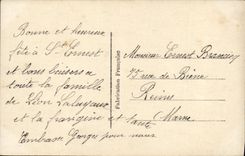 Bonne et heureuse
fête à St Ernest
et bons baisers à
toute la famille
de Léon
et la frangine et toute
Embrasse Georges pour nous
Fabrication Française
Monsieur Ernest
75 rue de
Reims
Marne